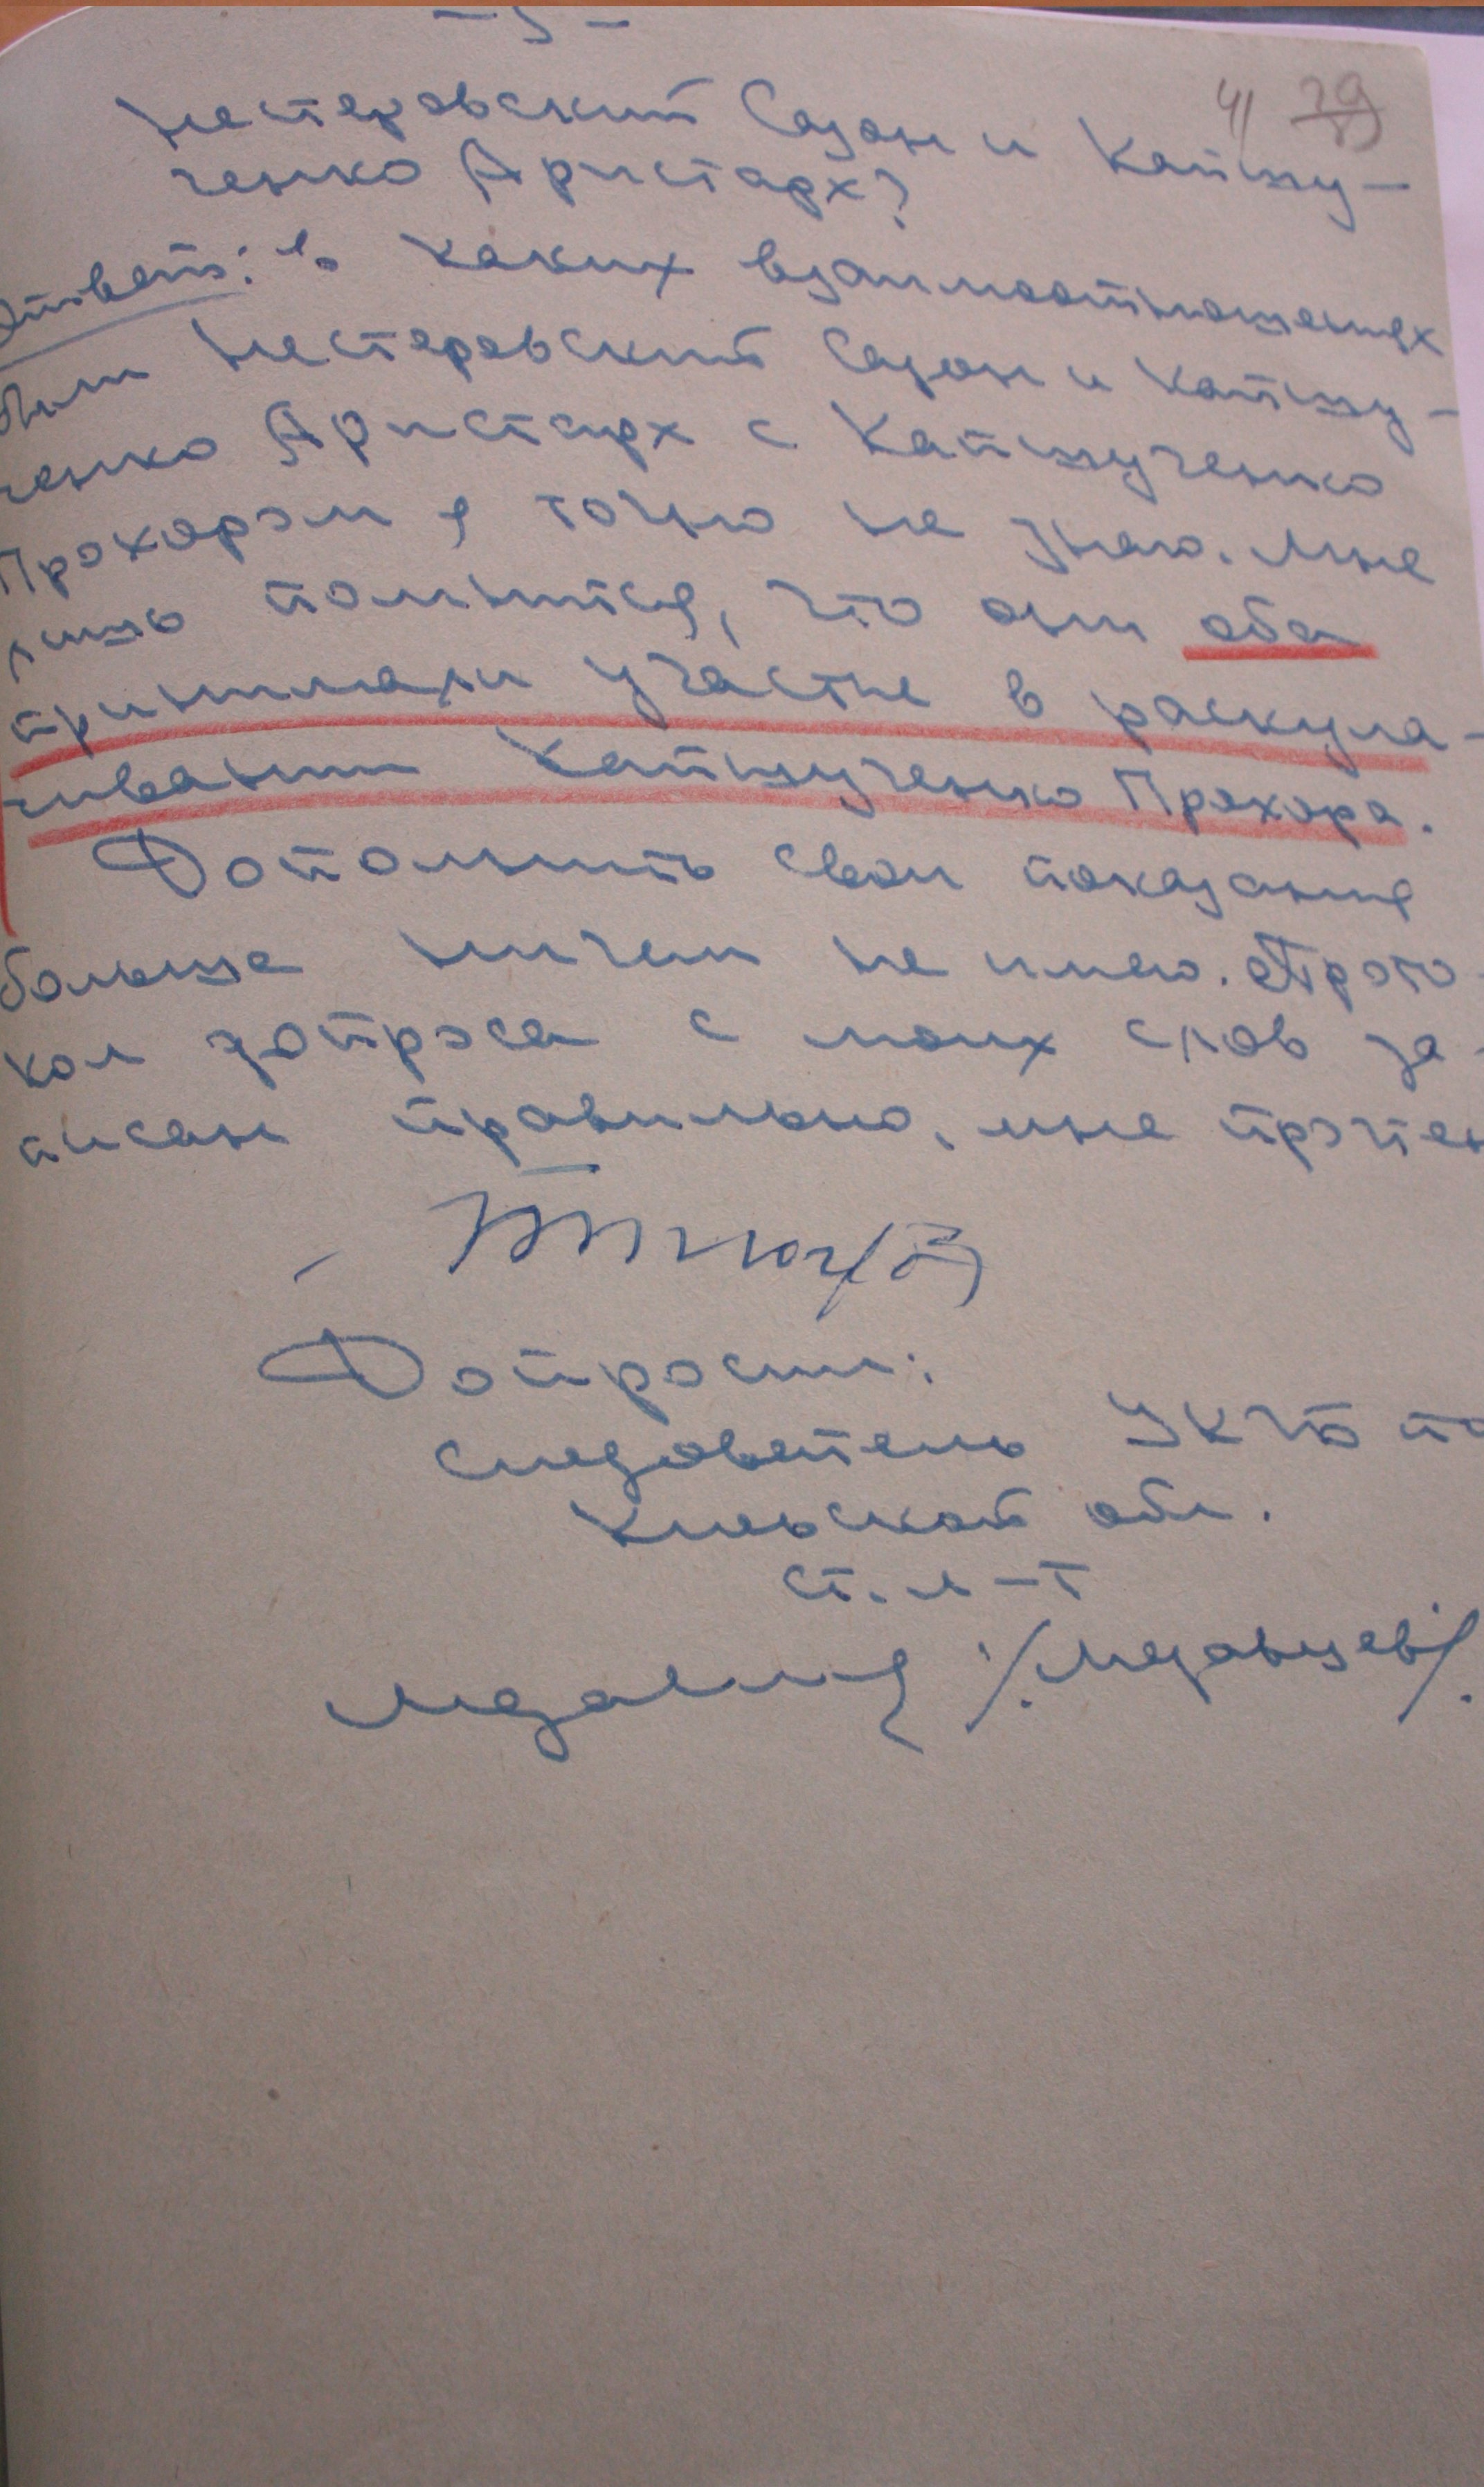 41 39
Нестеровский Сазон и Капшу-
ченко Аристарх?
Ответ: В каких взаимоотношениях
были Нестеровский Сазон и Капшу-
ченко Аристарх с Капшученко
Прохором я точно не знаю. Мне
лишь помнится, что они оба
принимали участие в раскула-
чивании Капшученко Прохора.
Дополнить свои показания
больше ничем не имею. Прото-
кол допроса с моих слов за-
писан правильно, мне прочтен
Допросил:
Следователь УКГБ по
Киевской обл.
ст. л-т